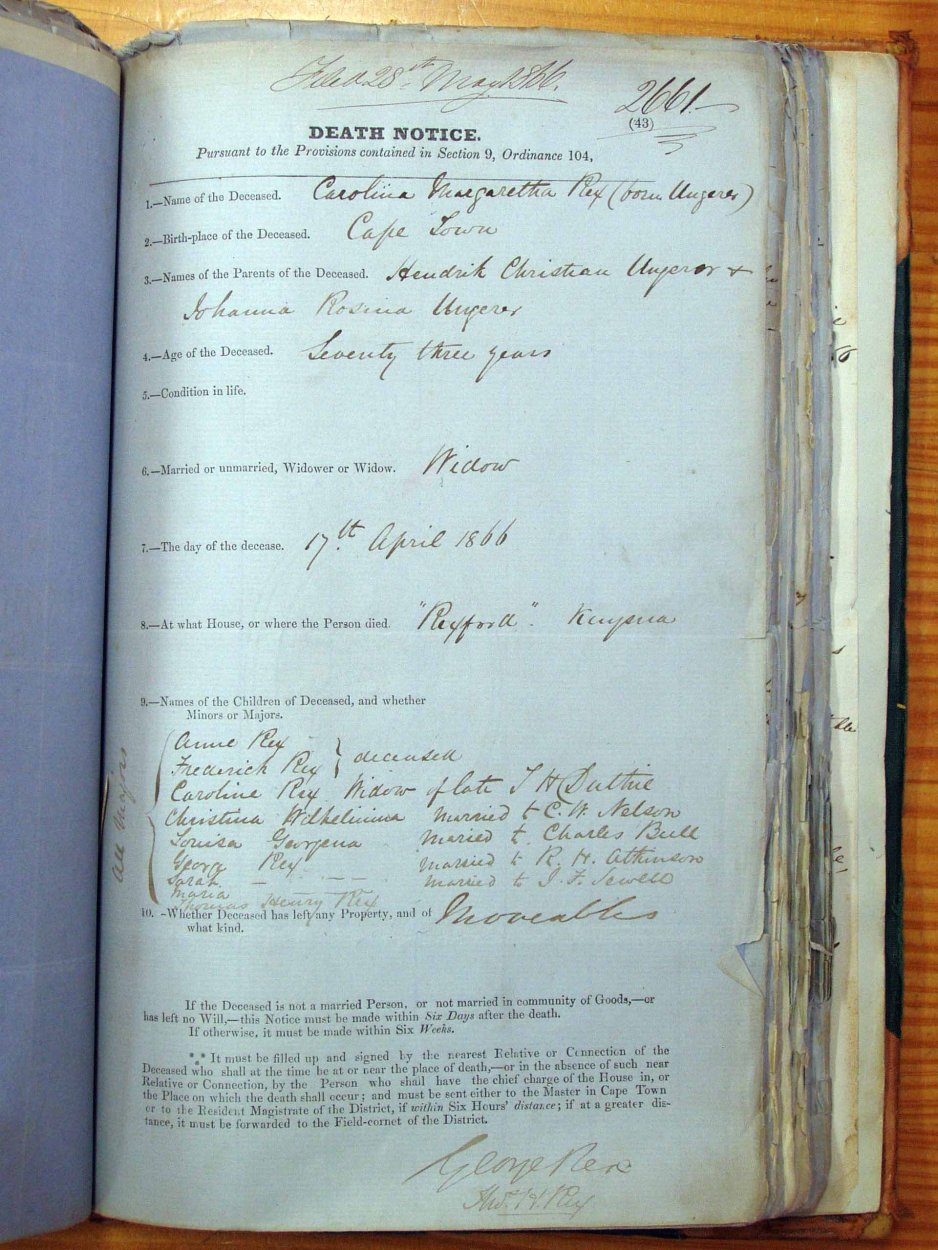 Filed 28th May 1866.
2661.
(43)
DEATH NOTICE.
Pursuant to the Provisions contained in Section 9, Ordinance 104,
1.—Name of the Deceased. Carolina Margaretha Rex (born Ungerer)
2.—Birth-place of the Deceased. Cape Town
3.—Names of the Parents of the Deceased. Hendrik Christian Ungerer &
Johanna Rosina Ungerer
4.—Age of the Deceased. Seventy three years
5.—Condition in life.
6.—Married or unmarried, Widower or Widow. Widow
7.—The day of the decease. 17th. April 1866
8.—At what House, or where the Person died. "Rexford". Knysna
9.—Names of the Children of Deceased, and whether
Minors or Majors.
All Majors
Anne Rex
Frederich Rex } deceased
Caroline Rex Widow of late T H Duthie
Christina Wilhelmina Married to C. W. Nelson
Louisa Georgena Maried to Charles Bull
George Rex
Sarah — — — married to R. H. Atkinson
Maria married to J. F. Sewell
Thomas Henry Rex
10. -Whether Deceased has left any Property, and of Moveables
what kind.
If the Deceased is not a married Person, or not married in community of Goods,—or
has left no Will,—this Notice must be made within Six Days after the death.
If otherwise, it must be made within Six Weeks.
*** It must be filled up and signed by the nearest Relative or Connection of the
Deceased who shall at the time be at or near the place of death,—or in the absence of such near
Relative or Connection, by the Person who shall have the chief charge of the House in, or
the Place on which the death shall occur; and must be sent either to the Master in Cape Town
or to the Resident Magistrate of the District, if within Six Hours' distance; if at a greater dis-
tance, it must be forwarded to the Field-cornet of the District.
George Rex
Thos. H. Rex